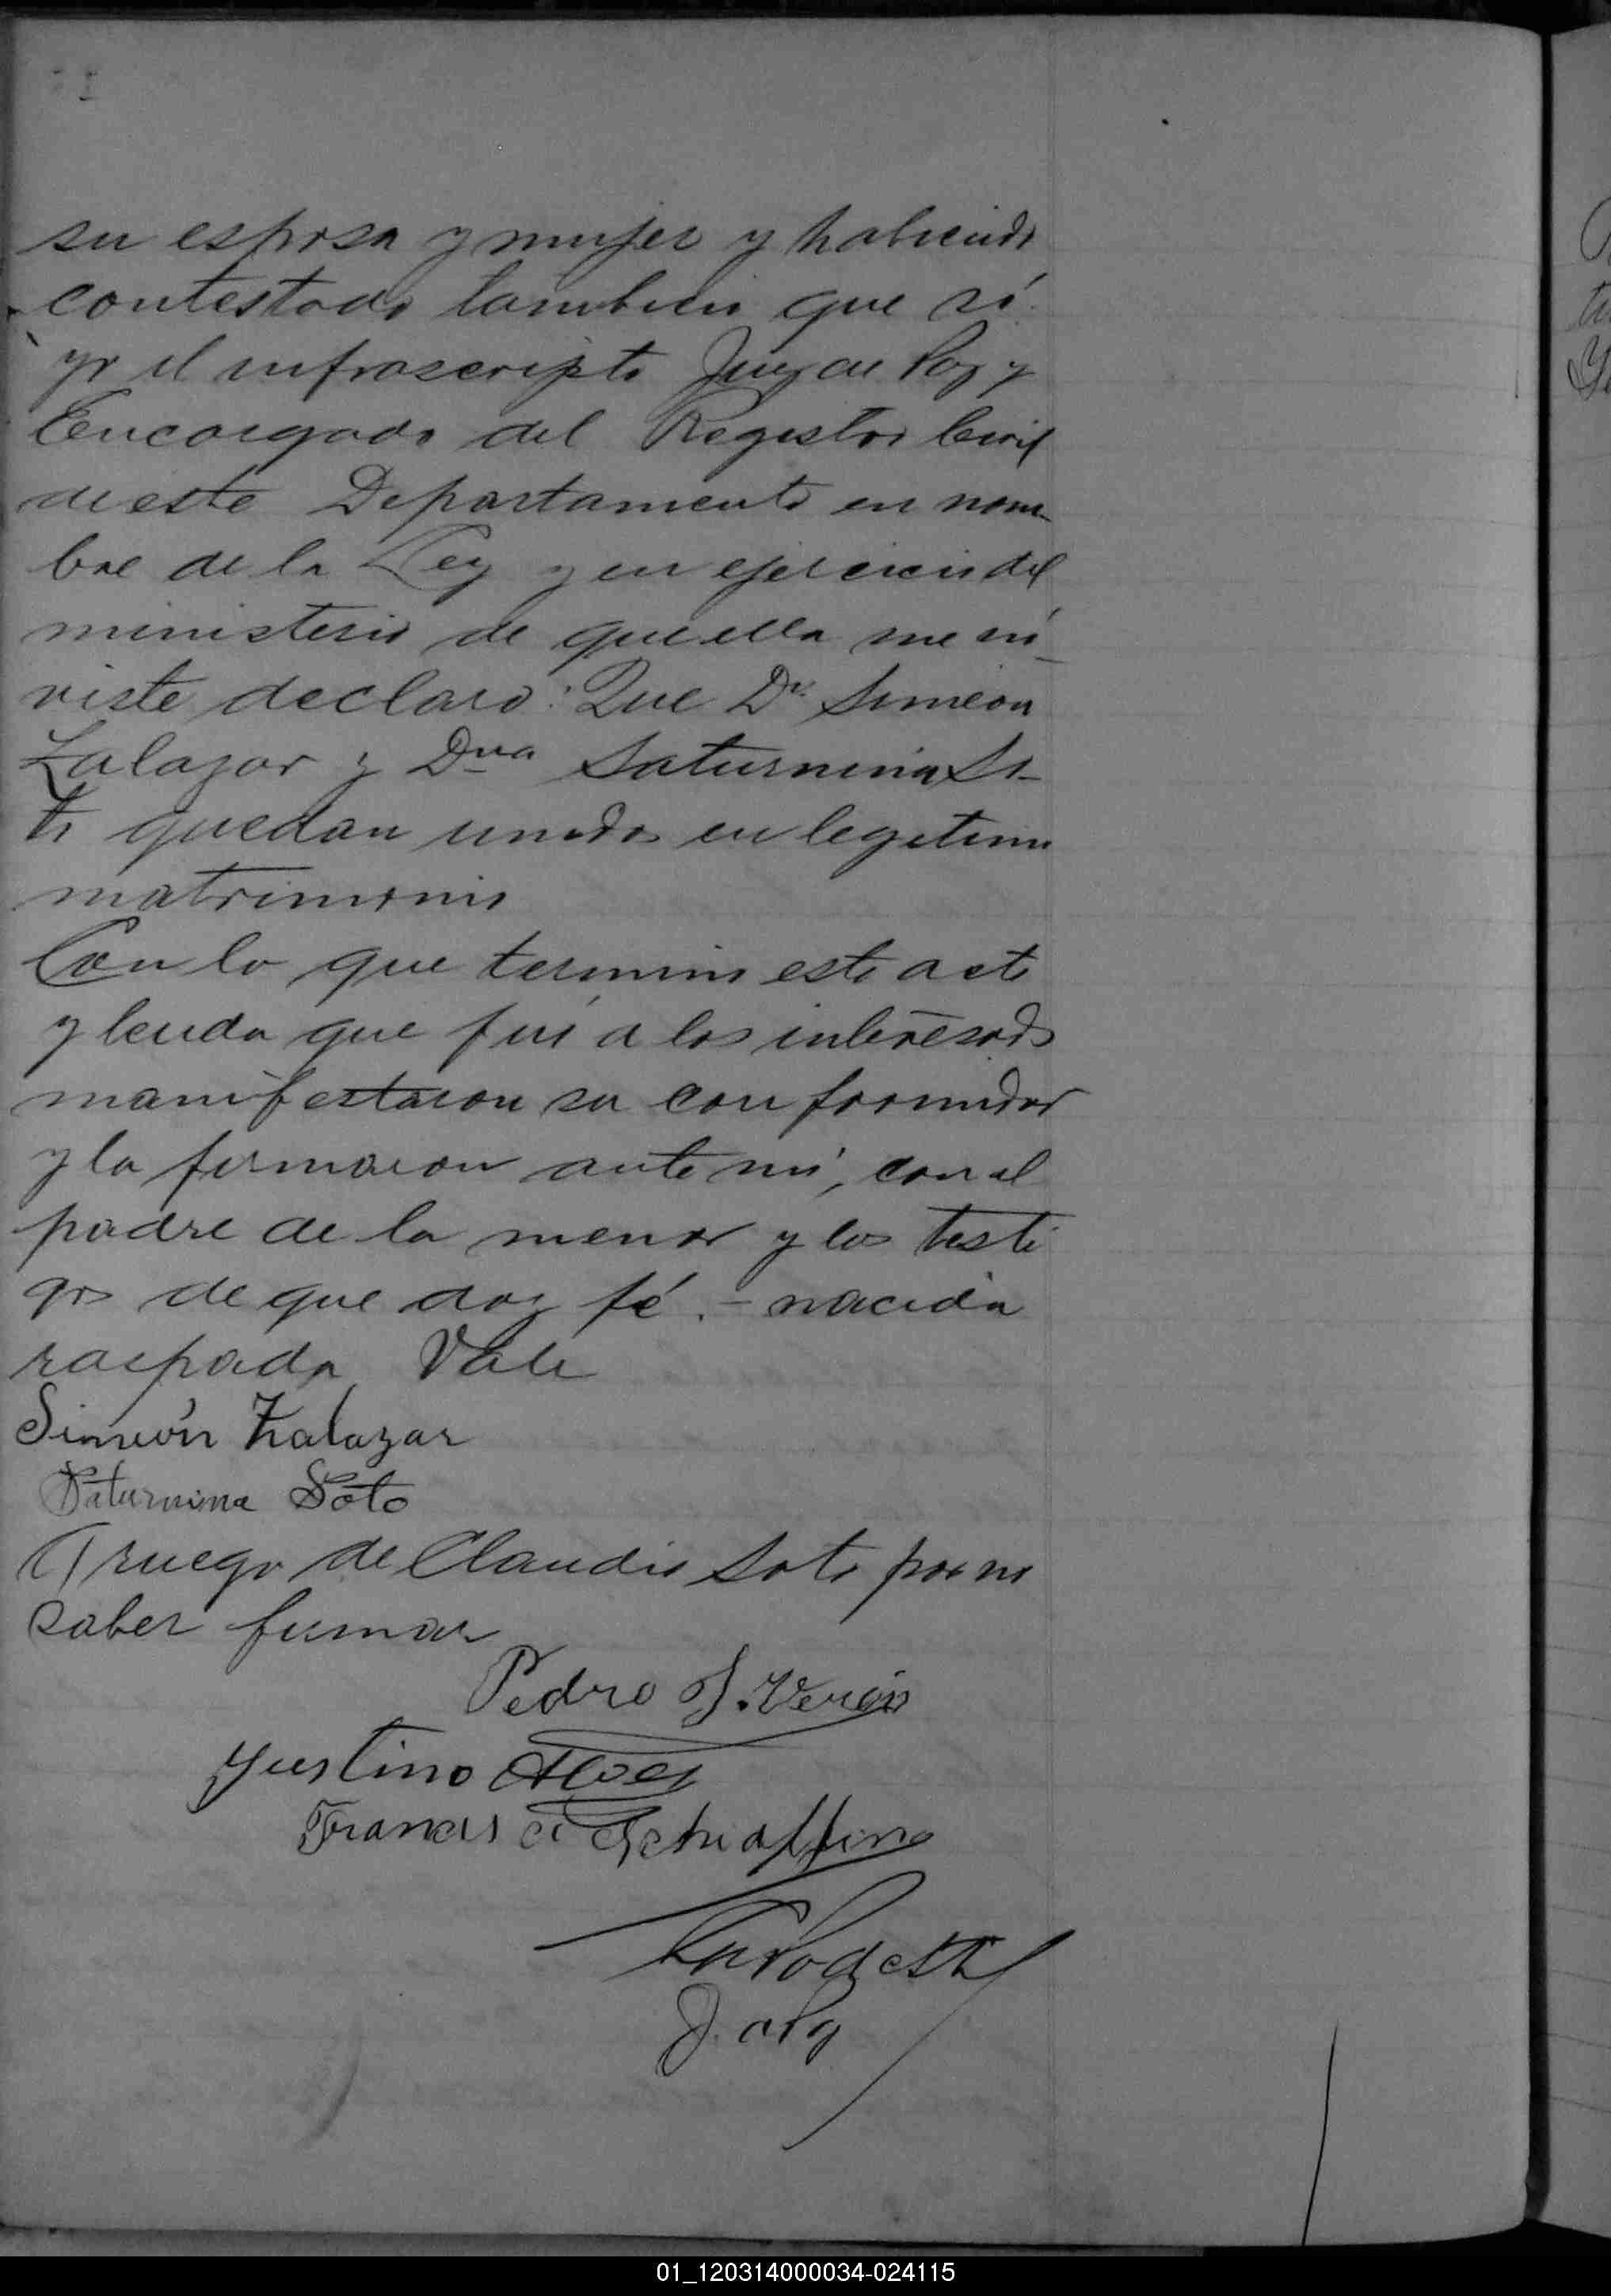 su esposa y mujer y habiendo
contestado tambien que sí
yo el infrascripto Juez de Paz y
Encargado del Registro Civil
de este Departamento en nom-
bre de la Ley y en ejercicio del
ministerio de que ella me in-
viste declaro: Que Dn Simeon
Zalazar y Dna Saturnina So-
to quedan unidos en legitimo
matrimonio
Con lo que termino este acto
y leida que fué a los interesados
manifestaron su conformidad
y la firmaron ante mí, con el
padre de la menor y los testi
gos de que doy fé.- nacida
raspada Vale
Simeón Zalazar
Saturnina Soto
A ruego de Claudio Soto por no
saber firmar
Pedro J. Verón
Justino
Francisco Schiaffino
J. de Paz
01_120314000034-024115